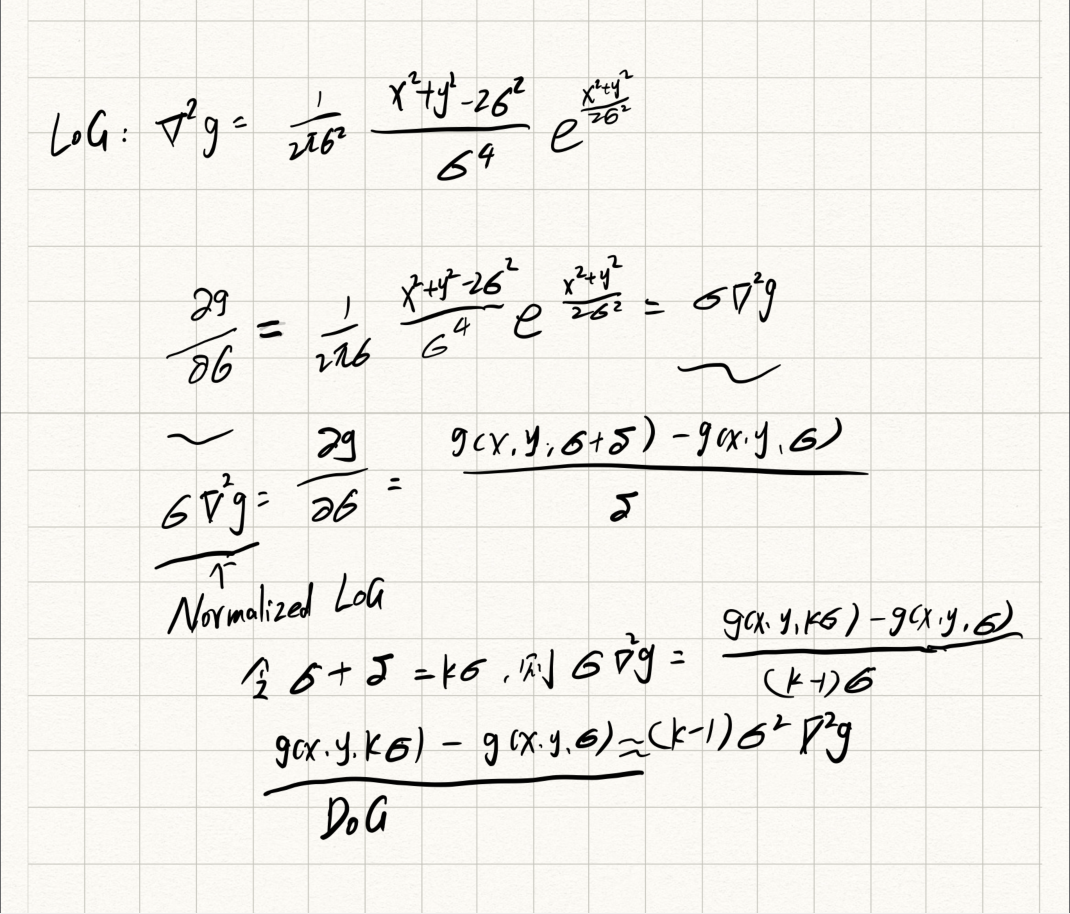 LoG: ∇²g = 1/(2πσ²) (x²+y²-2σ²)/σ⁴ e^((x²+y²)/(2σ²))
∂g/∂σ = 1/(2πσ) (x²+y²-2σ²)/σ⁴ e^((x²+y²)/(2σ²)) = σ∇²g
σ∇²g = ∂g/∂σ = (g(x,y,σ+δ) - g(x,y,σ))/δ
↑
Normalized LoG
令 σ+δ = kσ, 则 σ∇²g = (g(x,y,kσ) - g(x,y,σ))/((k-1)σ)
g(x,y,kσ) - g(x,y,σ) ≈ (k-1)σ²∇²g
DoG